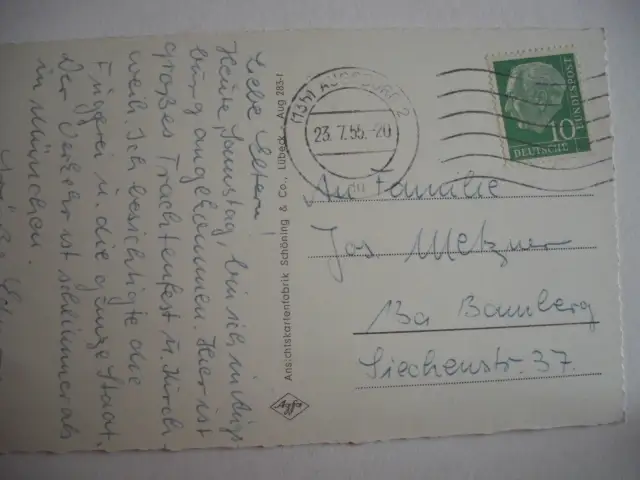 Liebe Eltern!
Heute, Samstag, bin ich in Augs
burg angekommen. Hier ist
großes Trachtenfest u. Kirch
weih. Ich besichtigte die
Fuggerei u. die ganze Stadt.
Der Verkehr ist schlimmer als
in München.
Ansichtskartenfabrik Schöning & Co., Lübeck Aug 283-1
Agfa
(13b) AUGSBURG 2
23.7.55.-20
10
DEUTSCHE BUNDESPOST
An Familie
Jos Metzner
13a Bamberg
Siechenstr. 37.